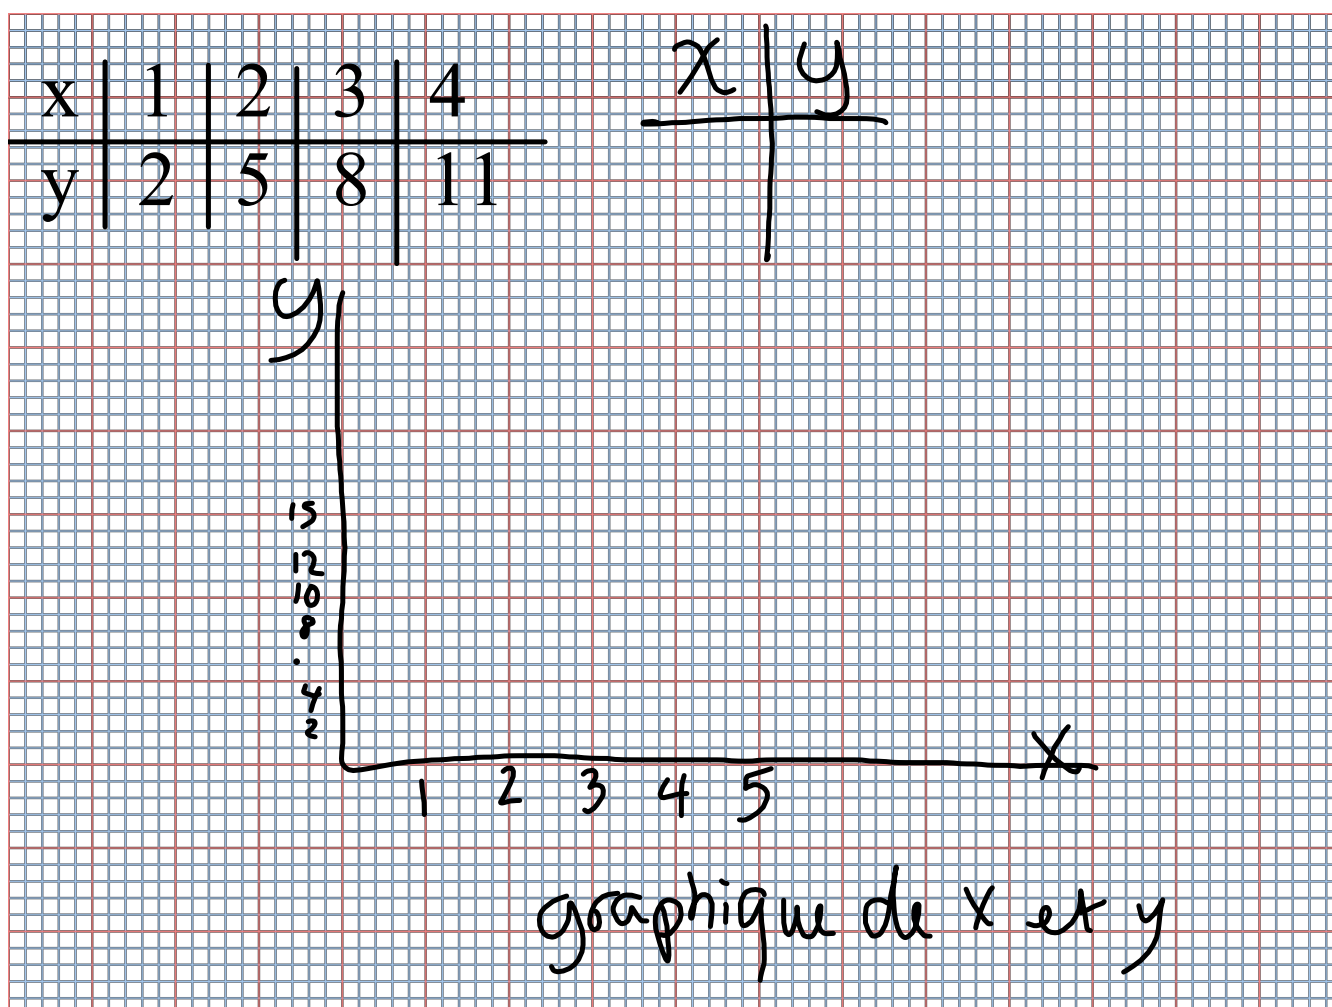 x 1 2 3 4
y 2 5 8 11
x y
y
15
12
10
8
.
4
2
x
1 2 3 4 5
graphique de x et y